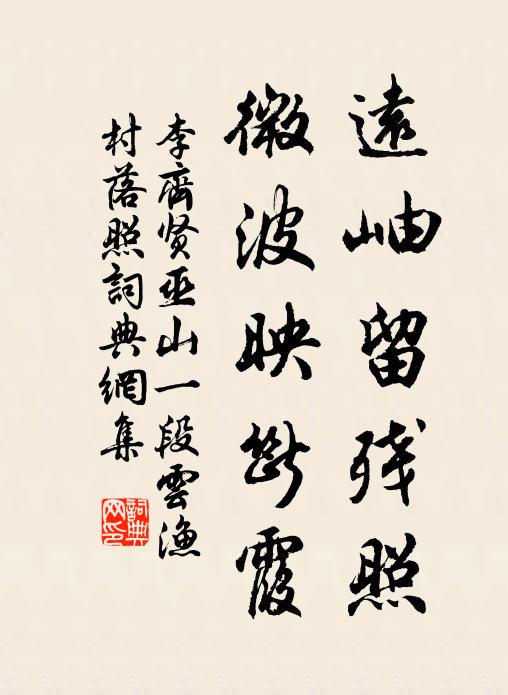 遠岫留残照
微波映斷霞
李齊贤巫山一段雲漁
村落照詞典網集
詞典网印